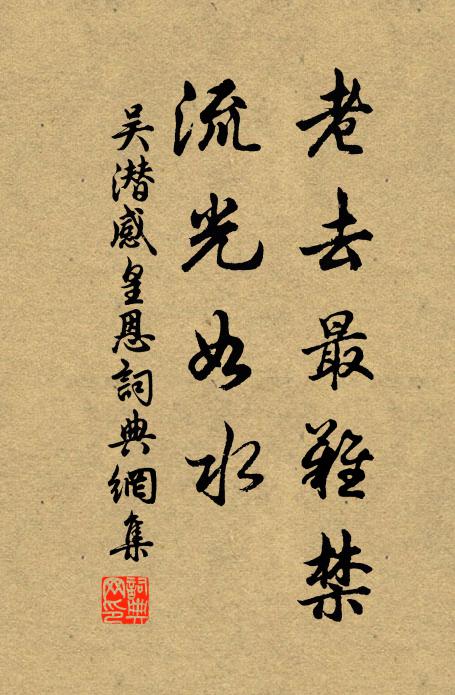 老去最難禁
流光如水
吴潜感皇恩詞典網集
詞典网印